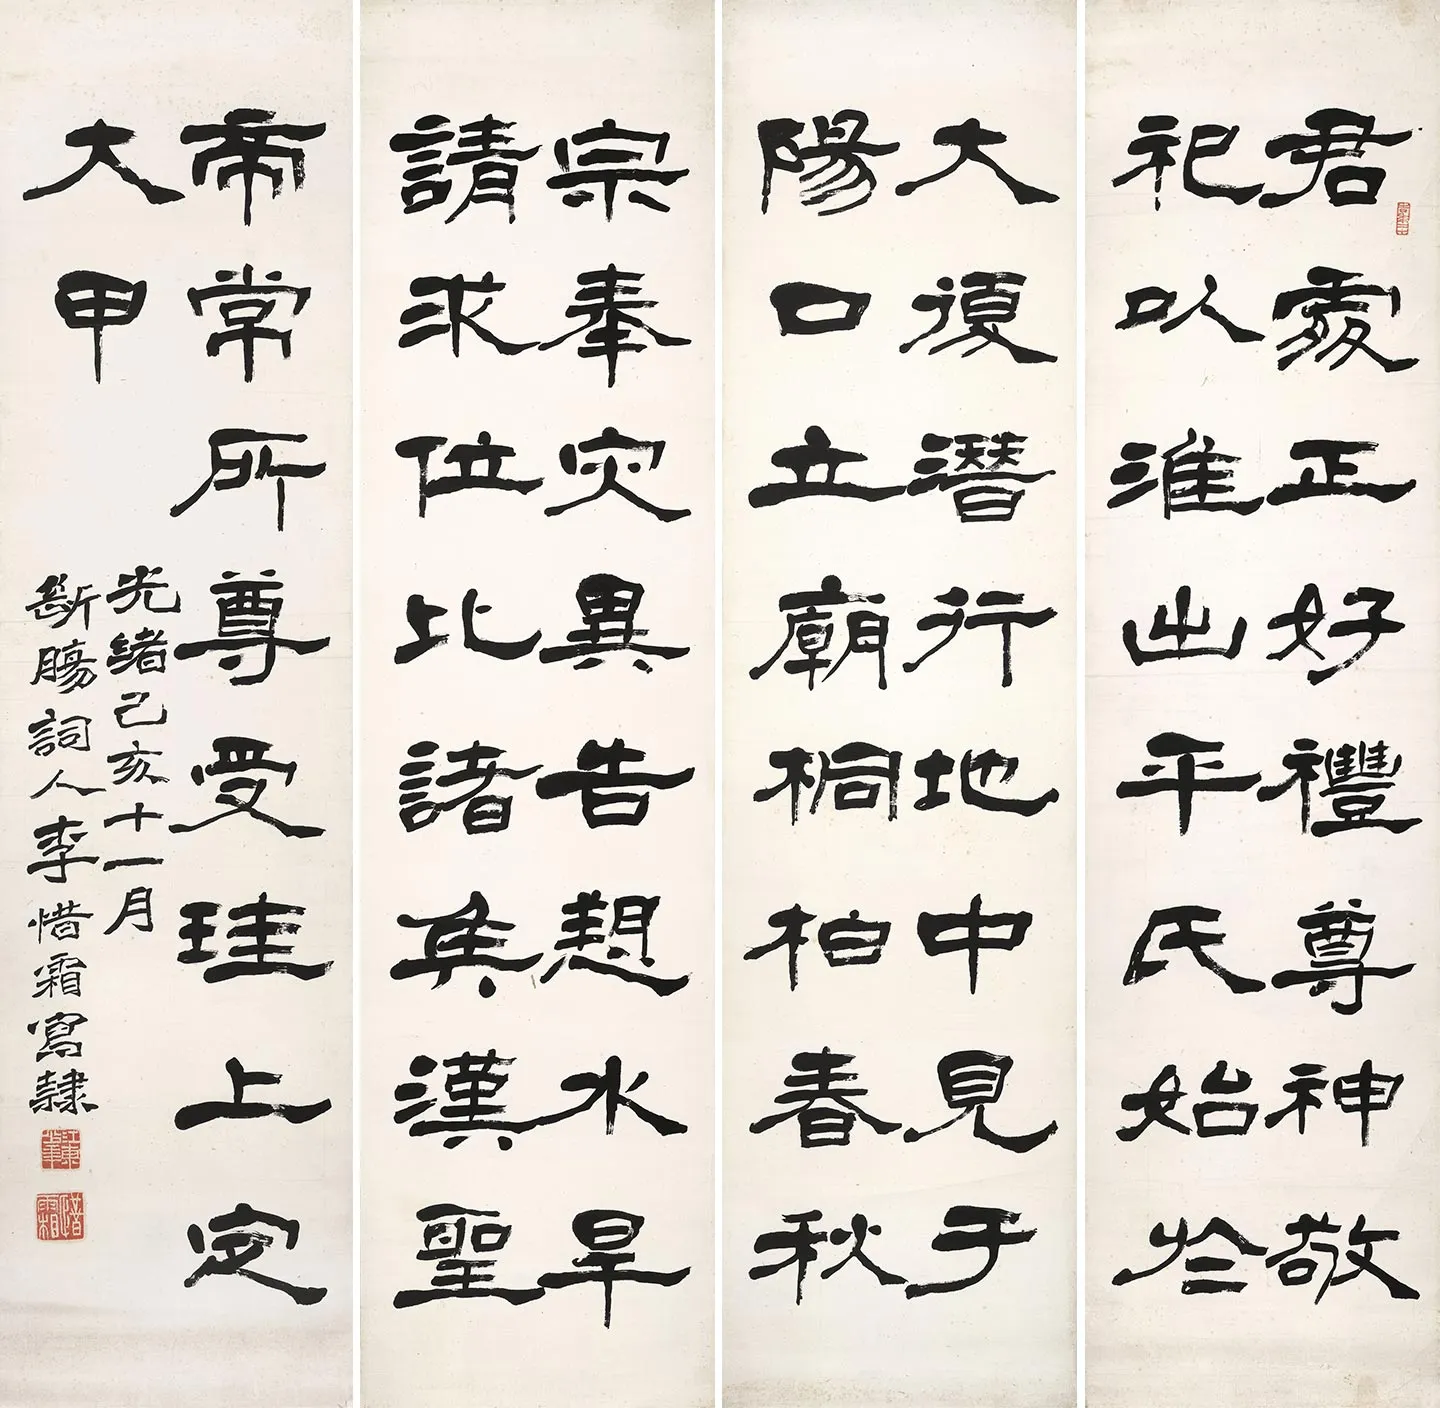 君處正好禮尊神敬
祀以淮出平氏始於
大復潛行地中見于
陽口立廟桐柏春秋
宗奉灾異告愬水旱
請求位比諸矦漢聖
帝常所尊受珪上定
大甲
光緒己亥十一月
斷腸詞人李惜霜寫隸
惜霜